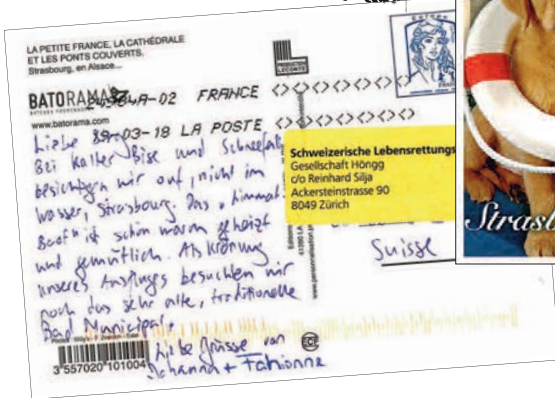 LA PETITE FRANCE, LA CATHÉDRALE
ET LES PONTS COUVERTS.
Strasbourg, en Alsace...
BATORAMA
www.batorama.com
A-02 FRANCE
-03-18 LA POSTE
PRODUCTION
LECONTE
Liebe
Bei kalter Bise und Schneefall
besichtigen wir auf, nicht im
Wasser, Strasbourg. Das "Limmat
Boot" ist schön warm geheizt
und gemütlich. Als Krönung
unseres Ausfluges besuchten wir
noch das sehr alte, traditionelle
Bad Municipal.
Liebe Grüsse von
Johanna + Fabienne
3 557020 101004
Schweizerische Lebensrettungs
Gesellschaft Höngg
c/o Reinhard Silja
Ackersteinstrasse 90
8049 Zürich
Suisse
Strasb